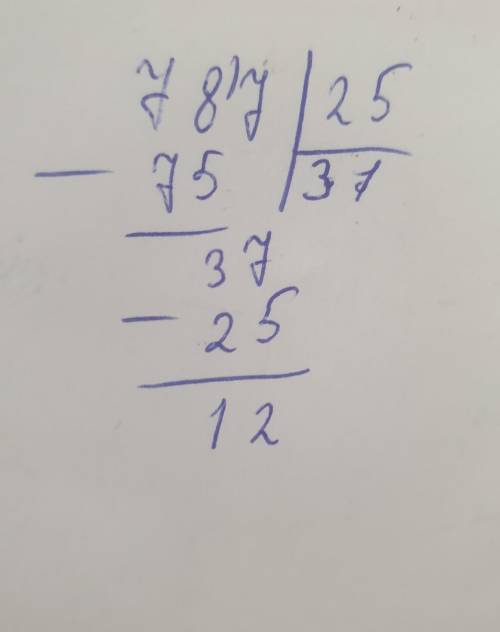 78'7 25
- 75 31
37
- 25
12